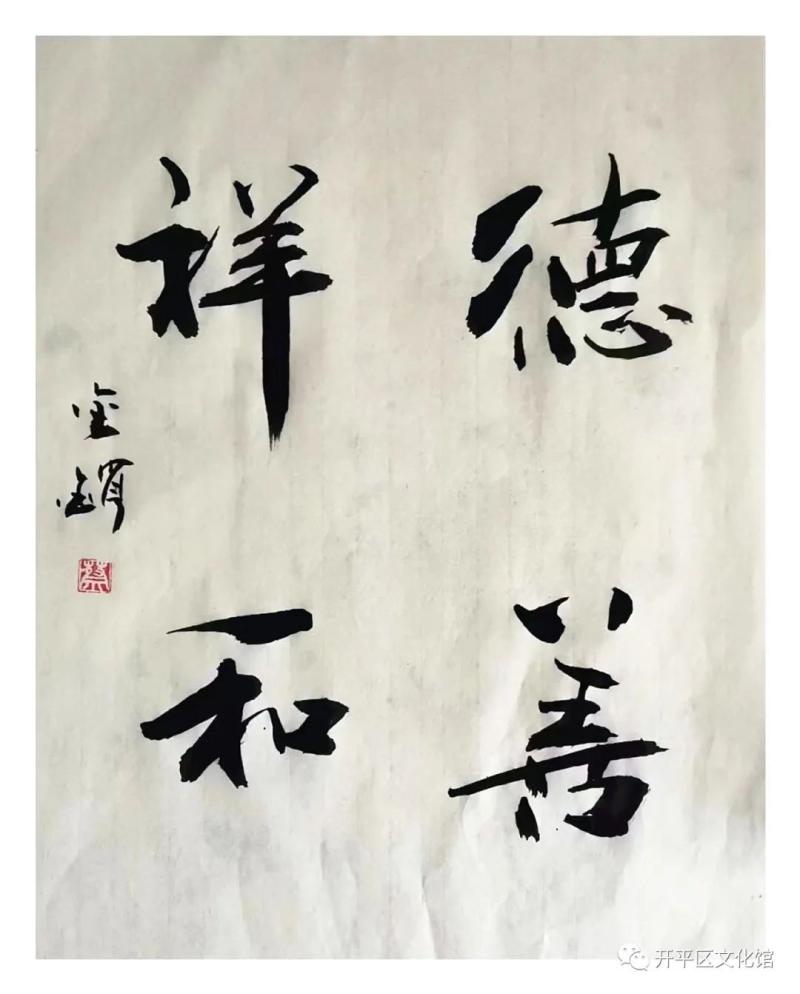 德善
祥和
金
蔡
开平区文化馆